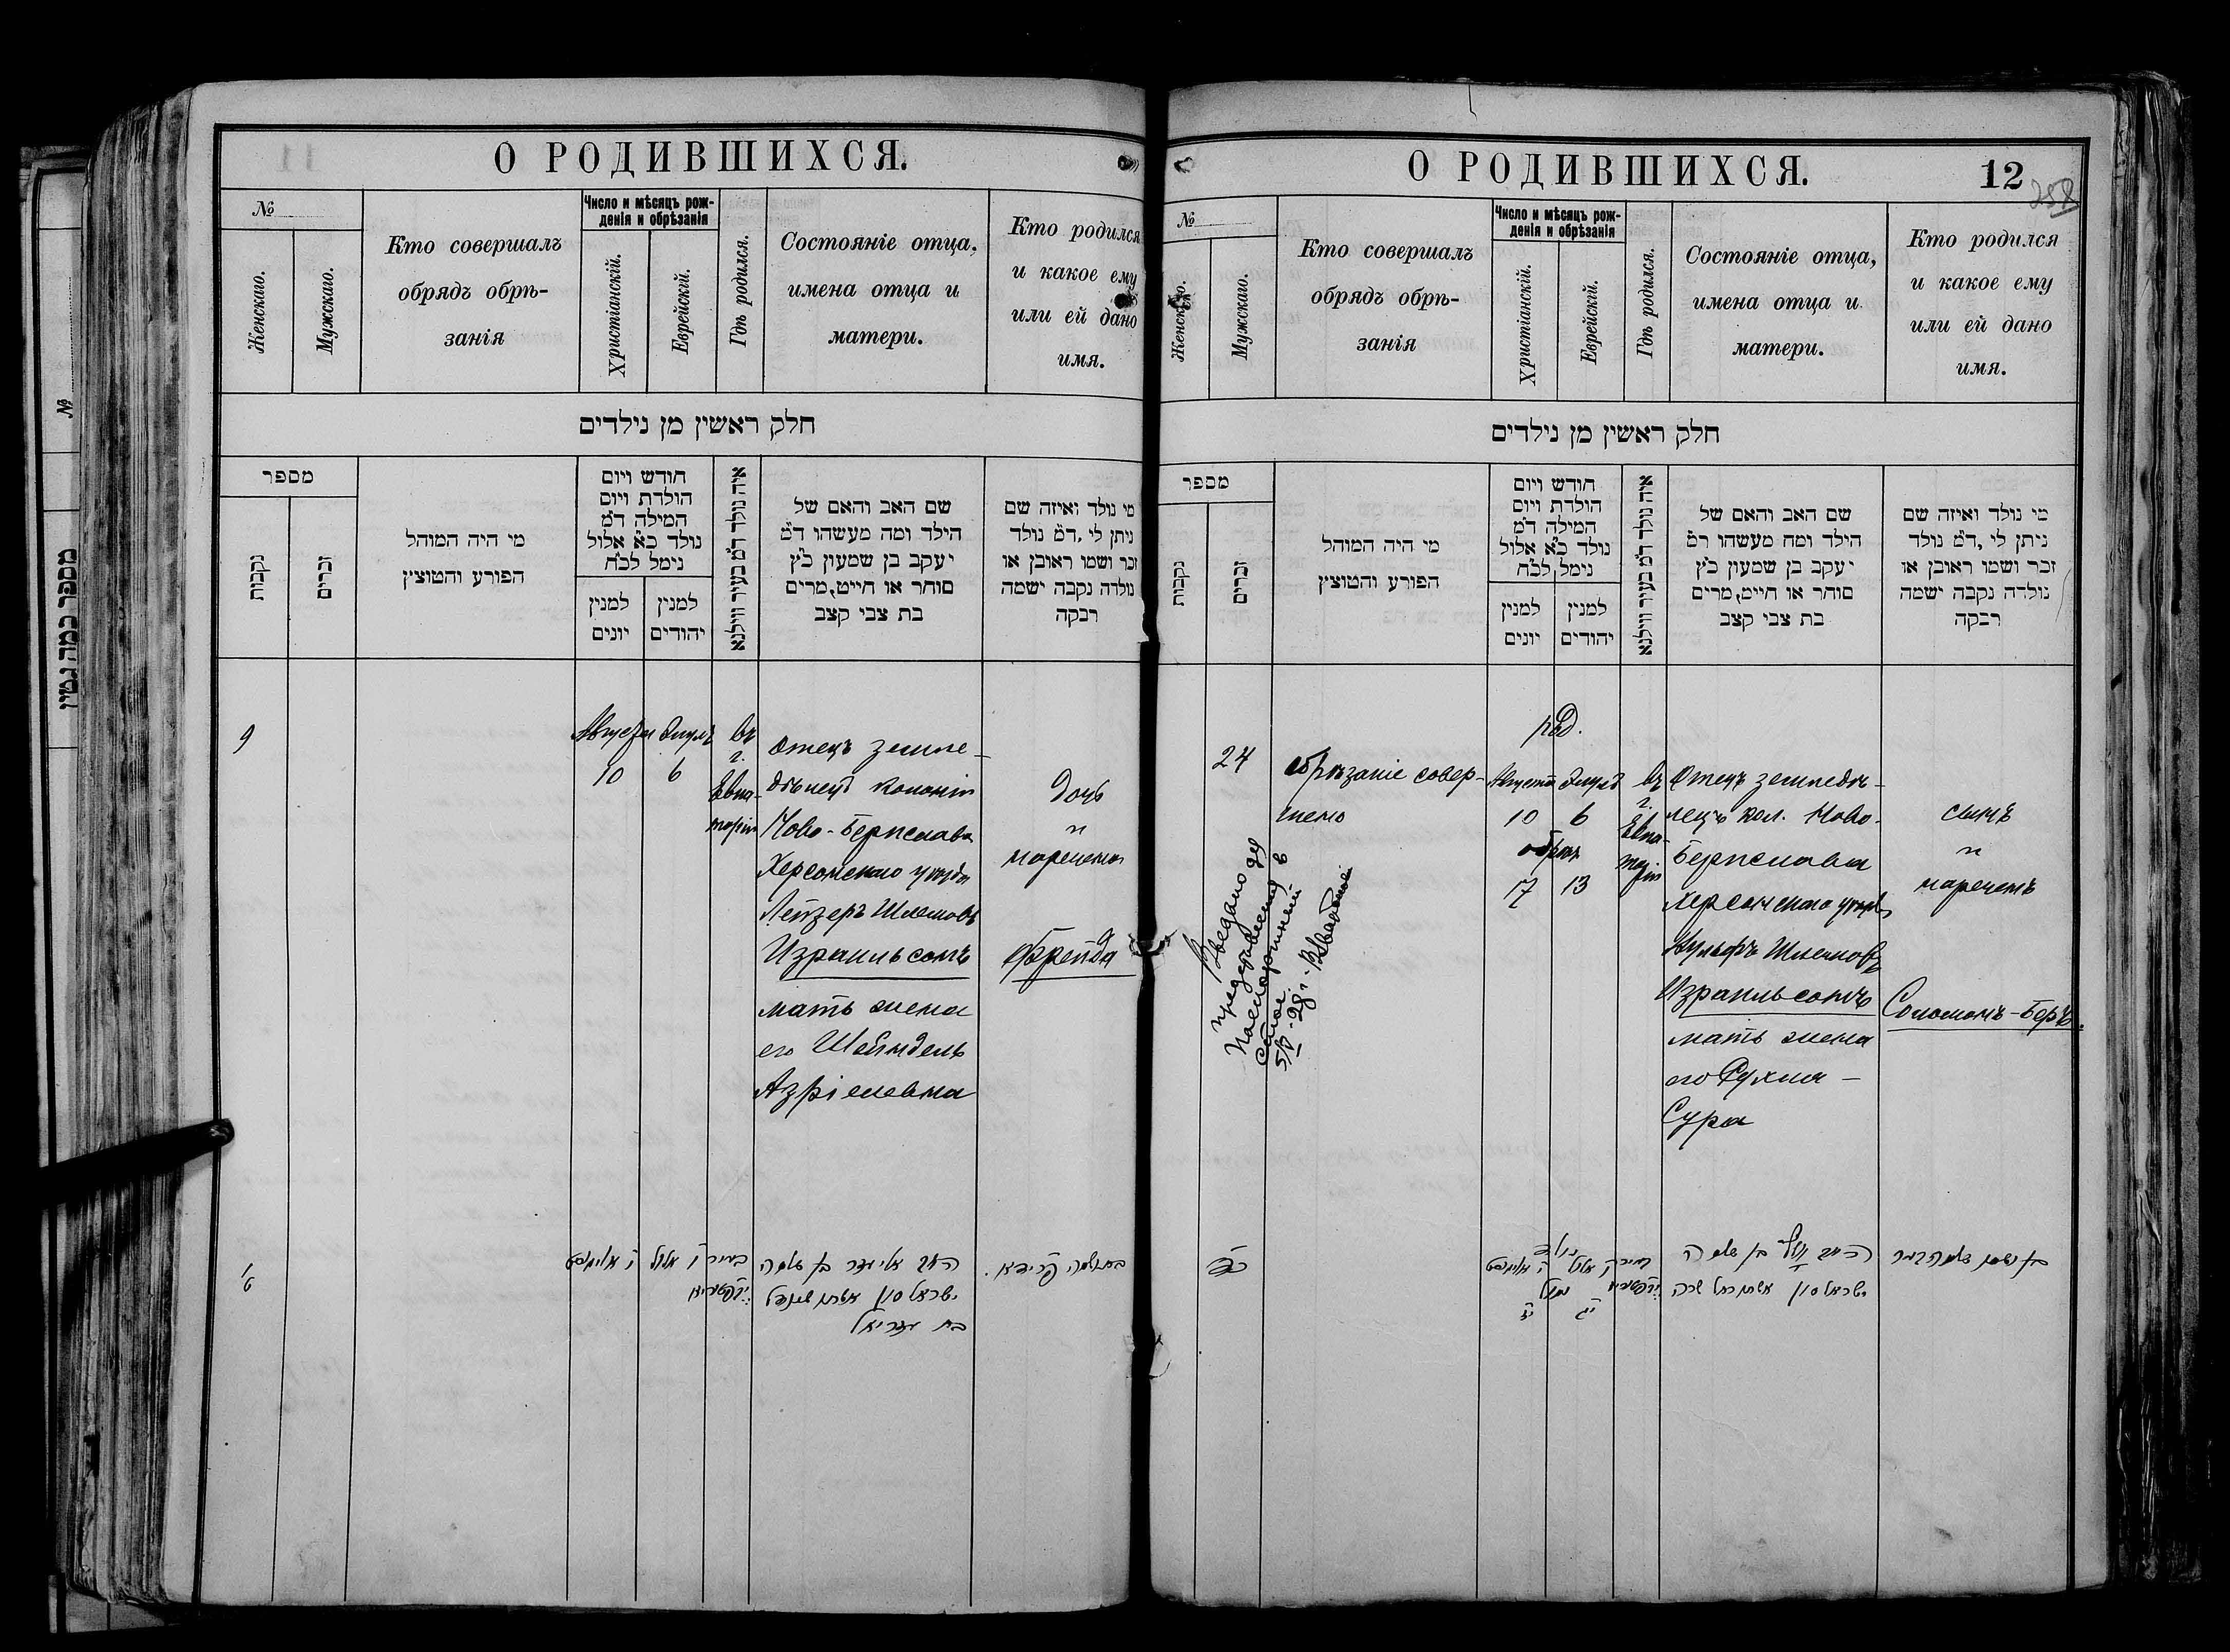 О РОДИВШИХСЯ.
№
Женскаго.
Мужскаго.
Кто совершалъ
обрядъ обрѣ-
занія
Число и мѣсяцъ рож-
денія и обрѣзанія
Христіанскій.
Еврейскій.
Гдѣ родился.
Состояніе отца,
имена отца и
матери.
Кто родился
и какое ему
или ей дано
имя.
חלק ראשין מן נילדים
מספר
נקבות
זכרים
מי היה המוהל
הפורע והטוצץ
חודש ויום
הולדת ויום
המילה ד״מ
נולד כ״א אלול
נימל לכ״ח
למנין
יונים
למנין
יהודים
איה נולד ד״מ בעיר ווילנא
שם האב והאם של
הילד ומה מעשהו ד״מ
יעקב בן שמעון כ״ץ
סוחר או חייט, מרים
בת צבי קצב
מי נולד ואיזה שם
ניתן לי, ד״מ נולד
זכר ושמו ראובן או
נולדה נקבה ישמה
רבקה
9
Августа Элулъ
10 6
въ
г.
Евпа-
торіи
Отецъ земле-
дѣлецъ колоніи
Ново-Берислава
Херсонскаго уѣзда
Лейзеръ Шлемовъ
Израильсонъ
мать жена
его Шейндель
Азріелевна
Дочь
и
наречена
Фрейда
ו אלול
האב אליעזר בן שלמה
ישראלסון אשתו שיינדל
בת עזריאל
פריידא
О РОДИВШИХСЯ.
12
258
№
Женскаго.
Мужскаго.
Кто совершалъ
обрядъ обрѣ-
занія
Число и мѣсяцъ рож-
денія и обрѣзанія
Христіанскій.
Еврейскій.
Гдѣ родился.
Состояніе отца,
имена отца и
матери.
Кто родился
и какое ему
или ей дано
имя.
חלק ראשין מן נילדים
מספר
נקבות
זכרים
מי היה המוהל
הפורע והטוצץ
חודש ויום
הולדת ויום
המילה ד״מ
נולד כ״א אלול
נימל לכ״ח
למנין
יונים
למנין
יהודים
איה נולד ד״מ בעיר ווילנא
שם האב והאם של
הילד ומה מעשהו ר״מ
יעקב בן שמעון כ״ץ
סוחר או חייט, מרים
בת צבי קצב
מי נולד ואיזה שם
ניתן לי, ד״מ נולד
זכר ושמו ראובן או
נולדה נקבה ישמה
רבקה
24
обрѣзаніе совер-
шено
род.
Августа Элулъ
10 6
обрѣз
17 13
въ
г.
Евпа-
торіи
Отецъ земледѣ-
лецъ кол. Ново-
Берислава
Херсонскаго уѣзда
Вульфъ Шлемовъ
Израильсонъ
мать жена
его Рухля-
Сура
сынъ
и
нареченъ
Соломонъ-Беръ.
Выдано для
представления в
Паспортный
стол.
נולד
ו אלול
נימול
יג
האב וואלף בן שלמה
ישראלסון אשתו רחל שרה